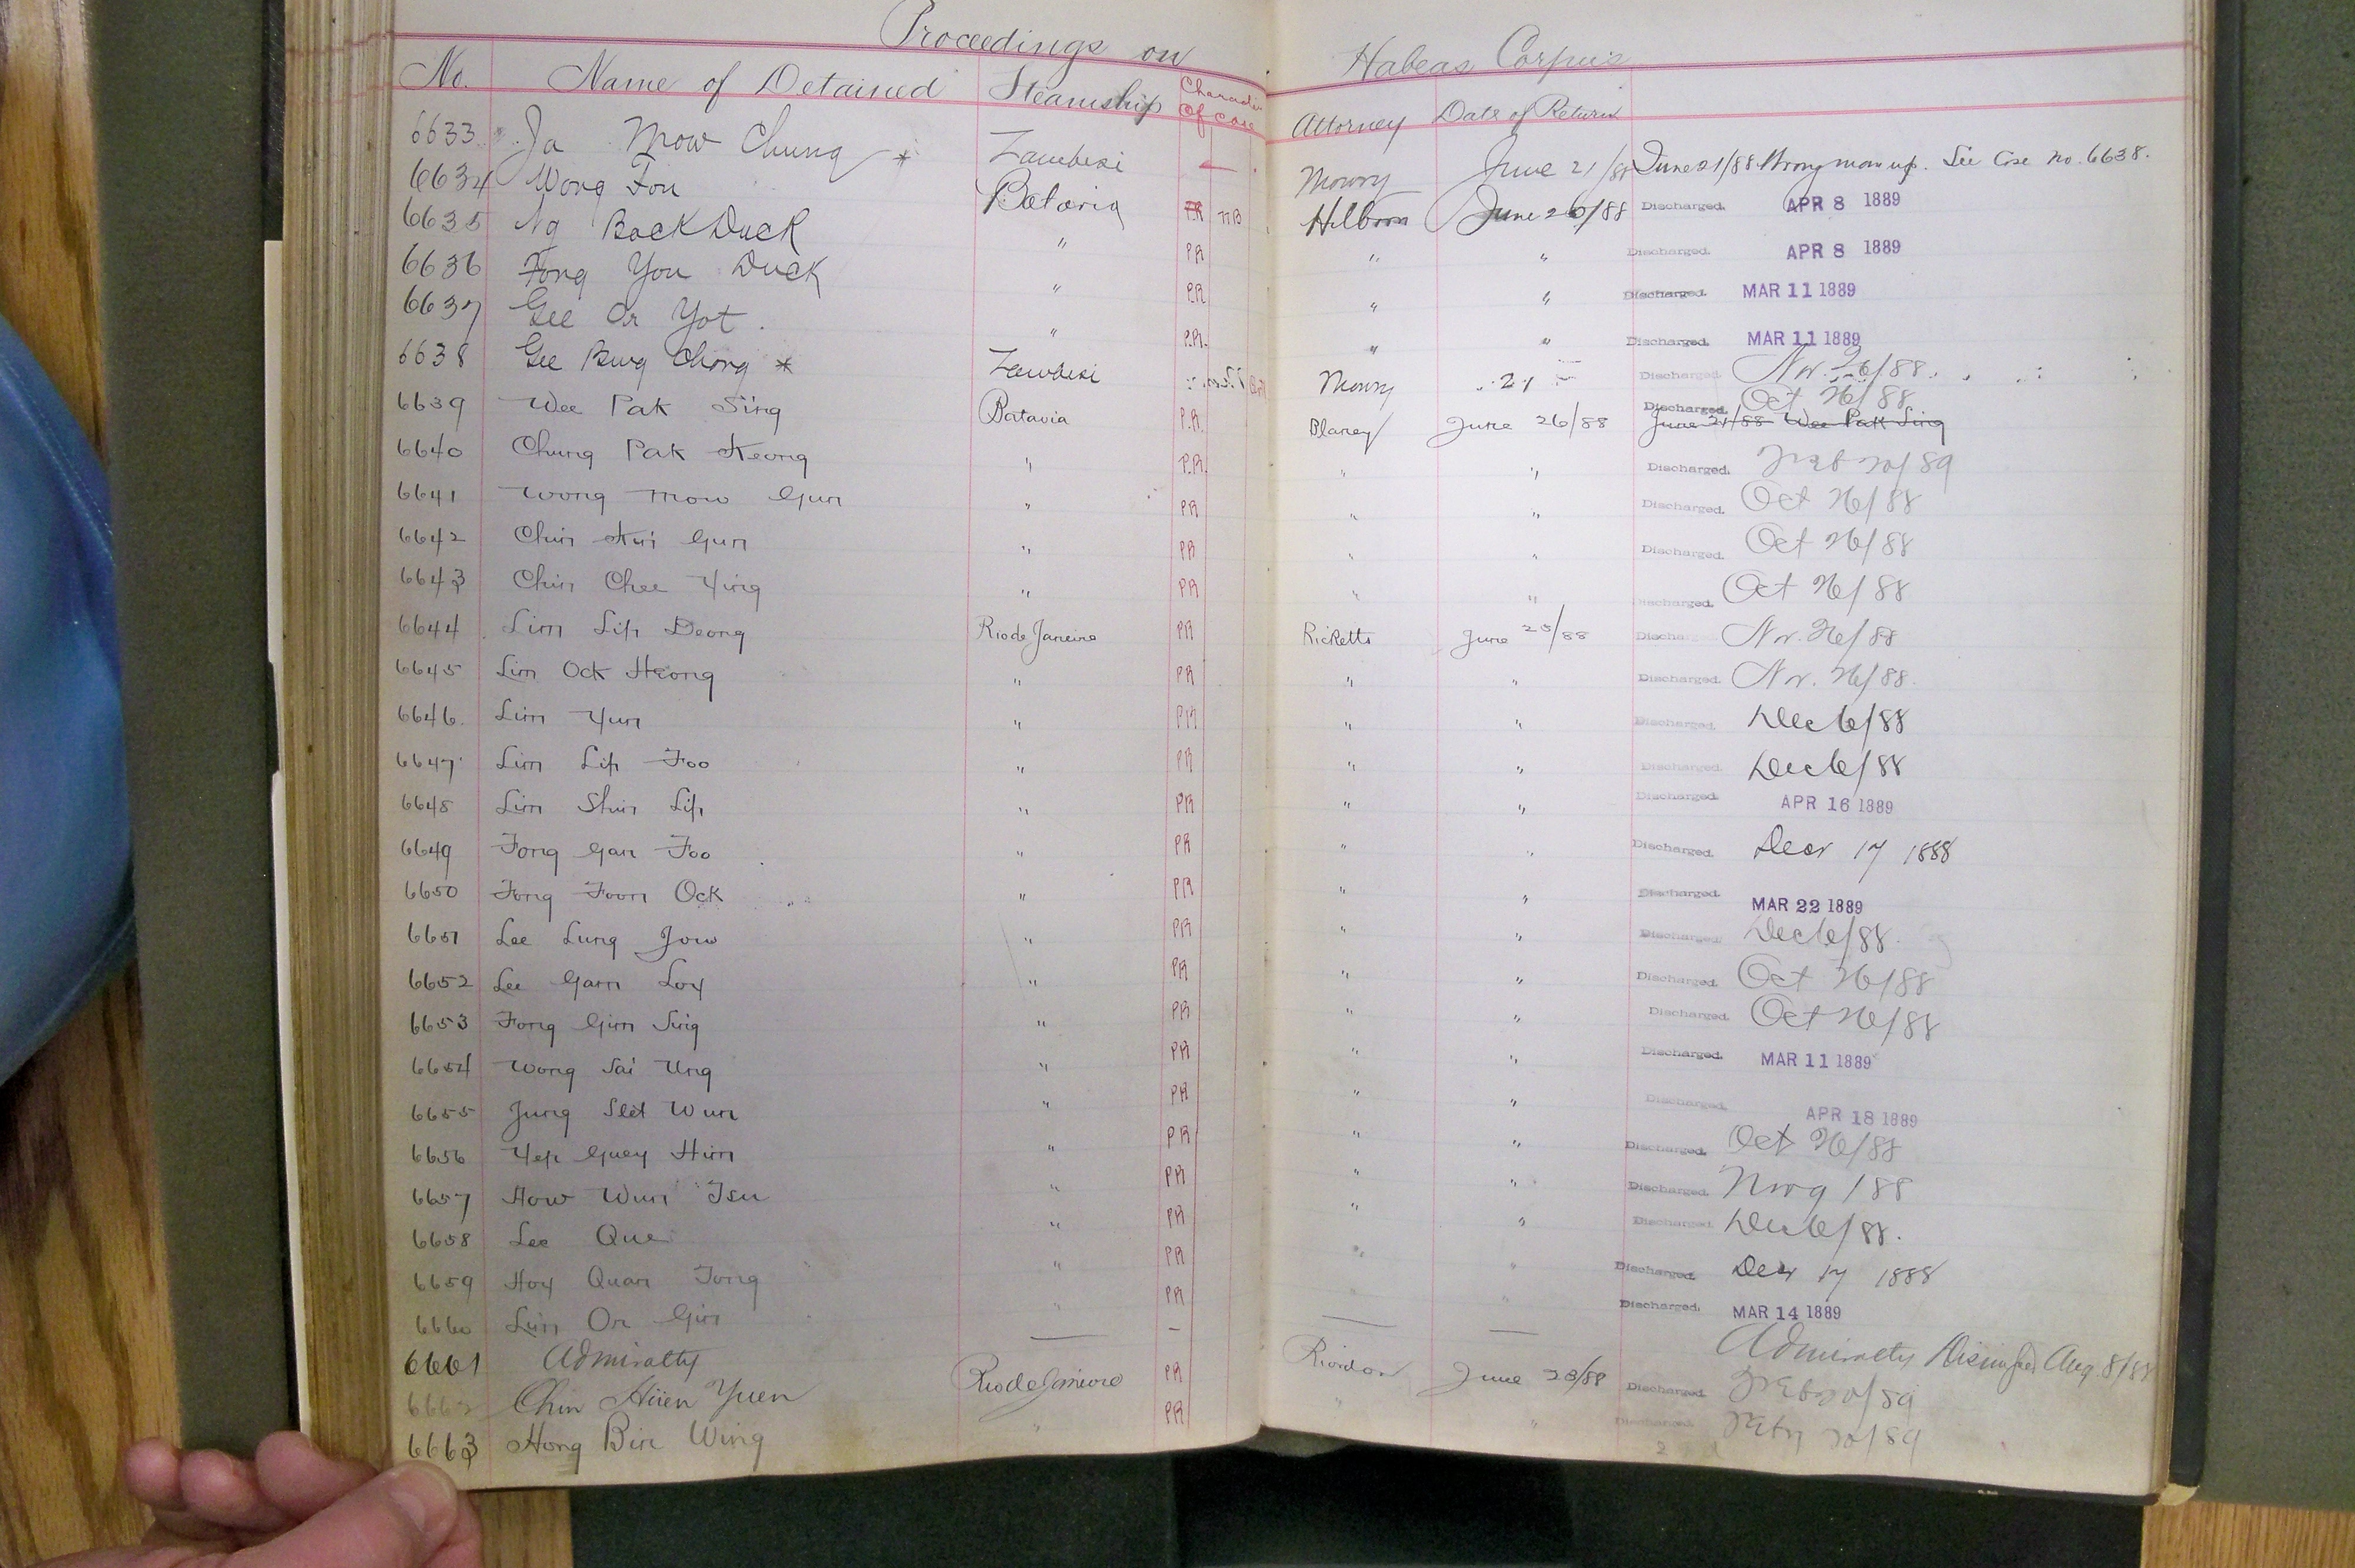 Proceedings on Habeas Corpus
No. Name of Detained Steamship Character of case Attorney Date of Return
6633 Ja Mow Chung * Zambesi — Mowry June 21/88 June 21/88 Wrong man up. See Case No. 6638.
6634 Wong Fou Batavia P.R. Hilborn June 26/88 Discharged. APR 8 1889
6635 Ng Back Duck " PR " " Discharged. APR 8 1889
6636 Fong You Duck " P.R " " Discharged. MAR 11 1889
6637 Gee Or Yot. " P.R. " " Discharged. MAR 11 1889
6638 Gee Bung Chong * Zambesi Mowry " 21 — Discharged. Nov. 26/88.
6639 Wee Pak Sing Batavia P.R. Blaney June 26/88 Discharged. Oct 26/88
June 21/88 Wee Pak Sing
6640 Chung Pak Keong " P.R. " " Discharged. Feb 20/89
6641 Wong Mow Gun " PR " " Discharged. Oct 26/88
6642 Chin Kui Gun " PR " " Discharged. Oct 26/88
6643 Chin Chee Ying " PR " " Discharged. Oct 26/88
6644 Lim Lip Deong Rio de Janeiro PR Ricketts June 25/88 Discha Nov. 26/88
6645 Lim Ock Heong " PR " " Discharged. Nov. 26/88.
6646. Lim Yun " PR " " Discharged. Dec 6/88
6647 Lim Lip Foo " PR " " Discharged. Dec 6/88
6648 Lim Shin Lip " PR " " Discharged. APR 16 1889
6649 Fong Gan Foo " PR " " Discharged. Decr 17 1888
6650 Fong Foon Ock " PR " " Discharged. MAR 22 1889
6651 Lee Lung Jow " PR " " Discharged. Dec 6/88.
6652 Lee Gam Loy " PR " " Discharged. Oct 26/88
6653 Fong Gim Sing " PR " " Discharged. Oct 26/88
6654 Wong Sai Ung " PR " " Discharged. MAR 11 1889
6655 Jung Slet Wun " PR " " Discharged. APR 18 1889
6656 Yep Guey Him " PR " " Discharged. Oct 26/88
6657 How Wun Tsu " PR " " Discharged. Nov 9/88
6658 Lee Que " PR " " Discharged. Dec 6/88.
6659 Hoy Quan Tong " PR " " Discharged. Decr 17 1888
6660 Lim On Gin " PR " " Discharged. MAR 14 1889
6661 Admiralty — — — — Admiralty Dismissed Aug. 8/88
6662 Chin Hien Yuen Rio de Janeiro PR Riordan June 28/88 Discharged. Feb 20/89
6663 Hong Bin Wing " PR " " Discharged. Feby 20/89